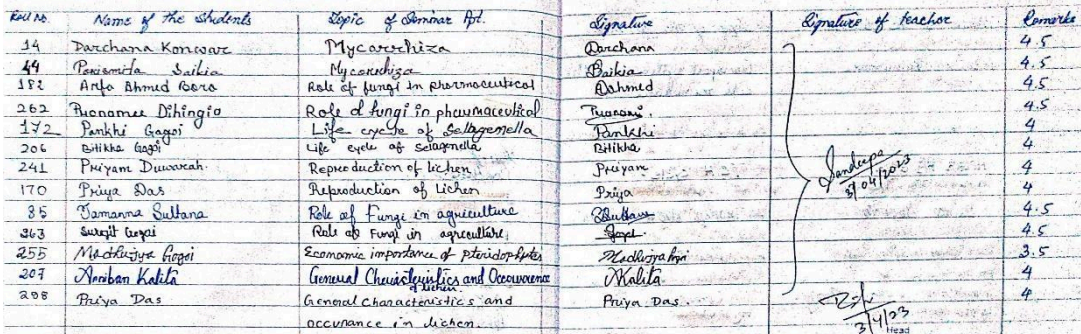 Roll No. Name of the Students Topic of Seminar Ppt. Signature Signature of teacher Remarks
14 Darchana Konwar Mycorrhiza Darchana 4.5
44 Parismita Saikia Mycorrhiza Saikia 4.5
182 Arfa Ahmed Bora Role of fungi in pharmoceutical Aahmed 4.5
262 Punamee Dihingia Role of fungi in pharmaceutical 4.5
172 Pankhi Gogoi Life cycle of Sellagenella Pankhi 4
206 Bitikha Gogoi Life cycle of Selagenella Bitikha 4
241 Priyam Duwarah Reproduction of lichen Priyam 4
170 Priya Das Reproduction of Lichen Priya 4
Sandeepa
3/04/2023
85 Tamanna Sultana Role of Fungi in agriculture TSultana 4.5
263 Surojit Gogoi Role of Fungi in agriculture Gogoi 4.5
255 Madhujya Gogoi Economic importance of pteridophytes Madhujya Gogoi 3.5
207 Anniban Kalita General Characteristics and Occurrence AKalita 4
of lichen.
298 Priya Das General Characteristics and Priya Das. 4
occurance in lichen.
3/4/23
Head